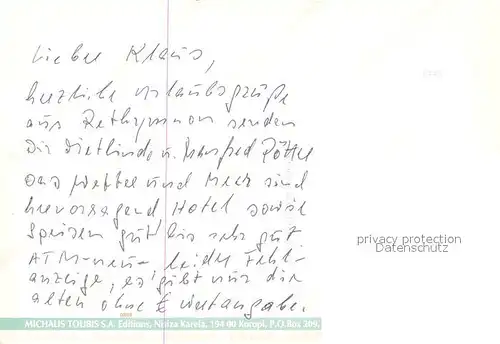 Lieber Klaus,
herzliche Urlaubsgrüße
aus Rethymnon senden
Dir Dietlinde u. Manfred
Das Wetter und Meer sind
hervorragend Hotel sowie
Speisen gut bis sehr gut
ATM-neu- leider Fehl-
anzeige, es gibt nur die
alten ohne € Wertangabe.
privacy protection
Datenschutz
MICHALIS TOUBIS S.A. Editions, Nisiza Karela, 194 00 Koropi, P.O.Box 209.